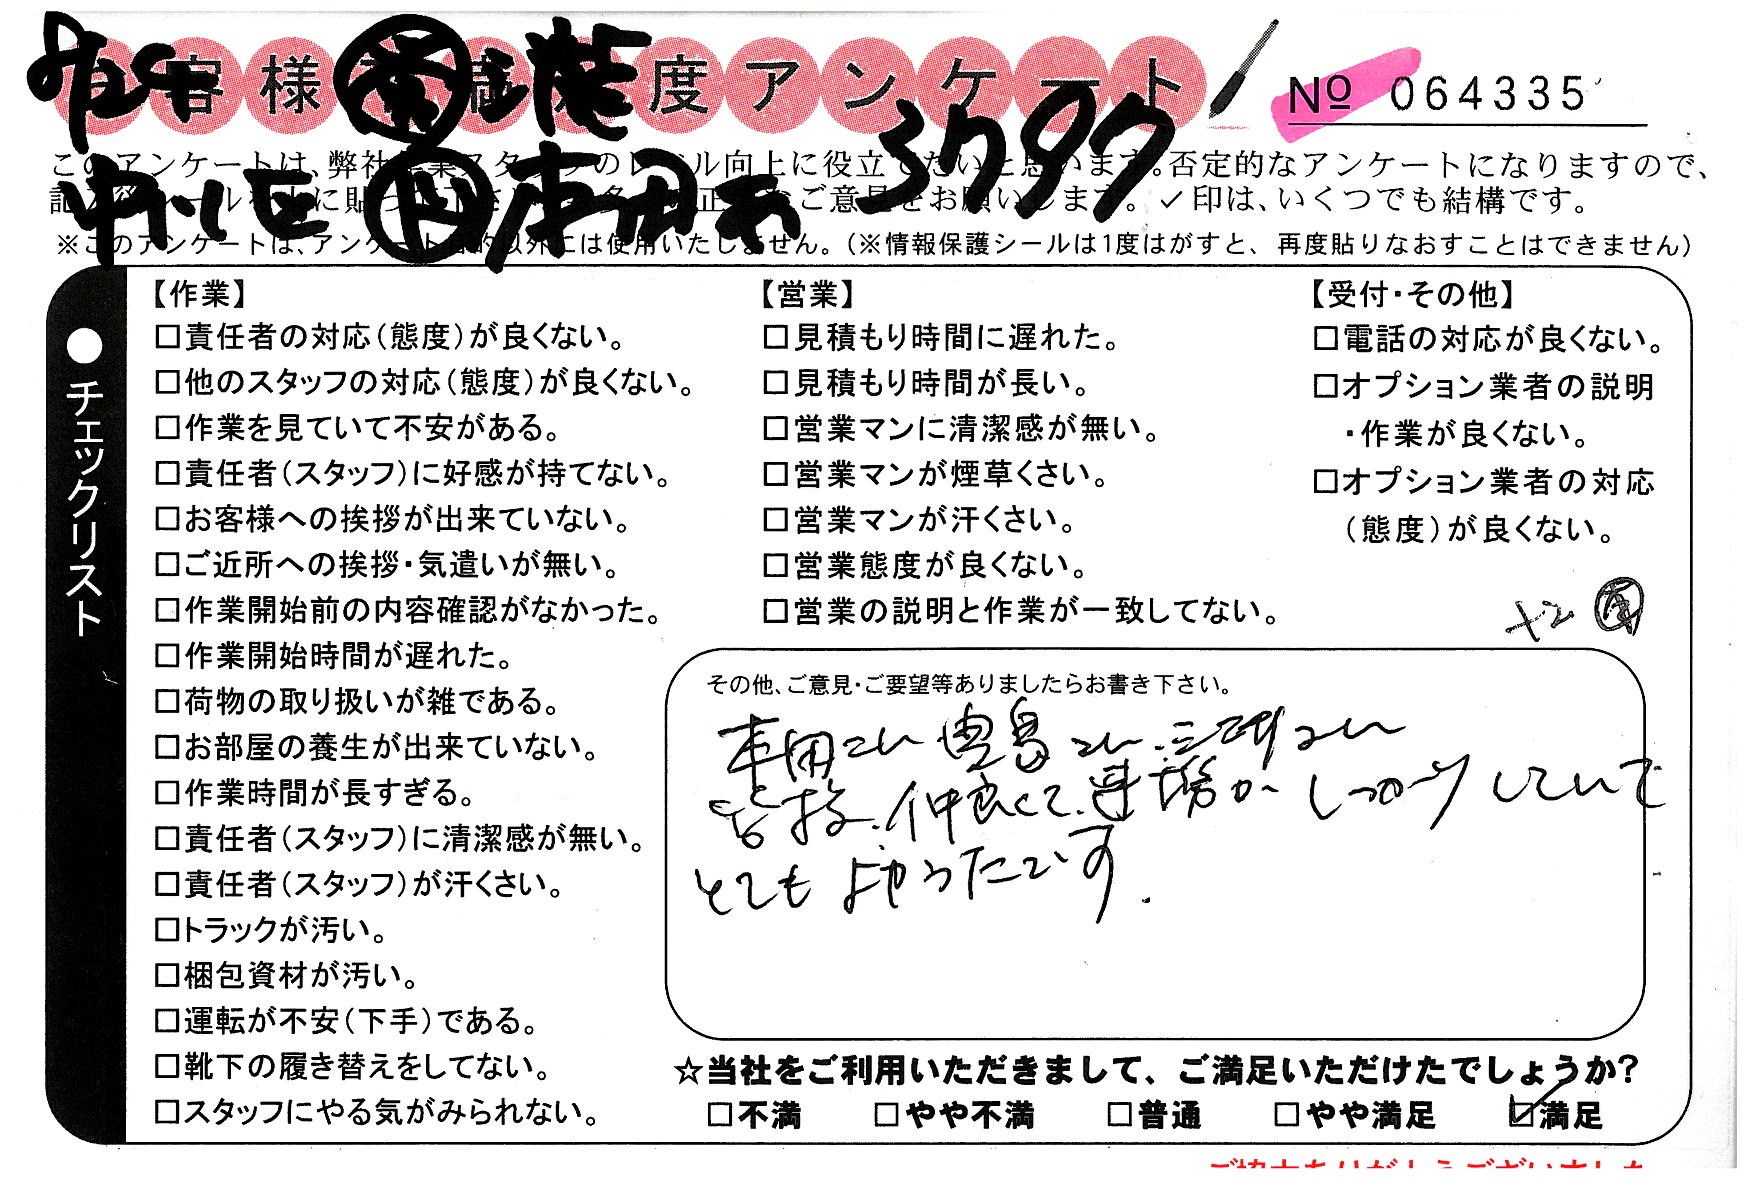 客様 度アンケート
№ 064335
3797
このアンケートは、弊社 業スタッフのレベル向上に役立てたいと思います。否定的なアンケートになりますので、
ご意見をお願いします。✓印は、いくつでも結構です。
※このアンケートは、アンケート目的以外には使用いたしません。（※情報保護シールは1度はがすと、再度貼りなおすことはできません）
●チェックリスト
【作業】
□責任者の対応（態度）が良くない。
□他のスタッフの対応（態度）が良くない。
□作業を見ていて不安がある。
□責任者（スタッフ）に好感が持てない。
□お客様への挨拶が出来ていない。
□ご近所への挨拶・気遣いが無い。
□作業開始前の内容確認がなかった。
□作業開始時間が遅れた。
□荷物の取り扱いが雑である。
□お部屋の養生が出来ていない。
□作業時間が長すぎる。
□責任者（スタッフ）に清潔感が無い。
□責任者（スタッフ）が汗くさい。
□トラックが汚い。
□梱包資材が汚い。
□運転が不安（下手）である。
□靴下の履き替えをしてない。
□スタッフにやる気がみられない。
【営業】
□見積もり時間に遅れた。
□見積もり時間が長い。
□営業マンに清潔感が無い。
□営業マンが煙草くさい。
□営業マンが汗くさい。
□営業態度が良くない。
□営業の説明と作業が一致してない。
【受付・その他】
□電話の対応が良くない。
□オプション業者の説明
・作業が良くない。
□オプション業者の対応
（態度）が良くない。
その他、ご意見・ご要望等ありましたらお書き下さい。
車用さん 豊島さん
皆様、仲良くて、連携が しっかりしていて
とてもよかったです.
☆当社をご利用いただきまして、ご満足いただけたでしょうか?
□不満 □やや不満 □普通 □やや満足 ☑満足
ご協力ありがとうございました